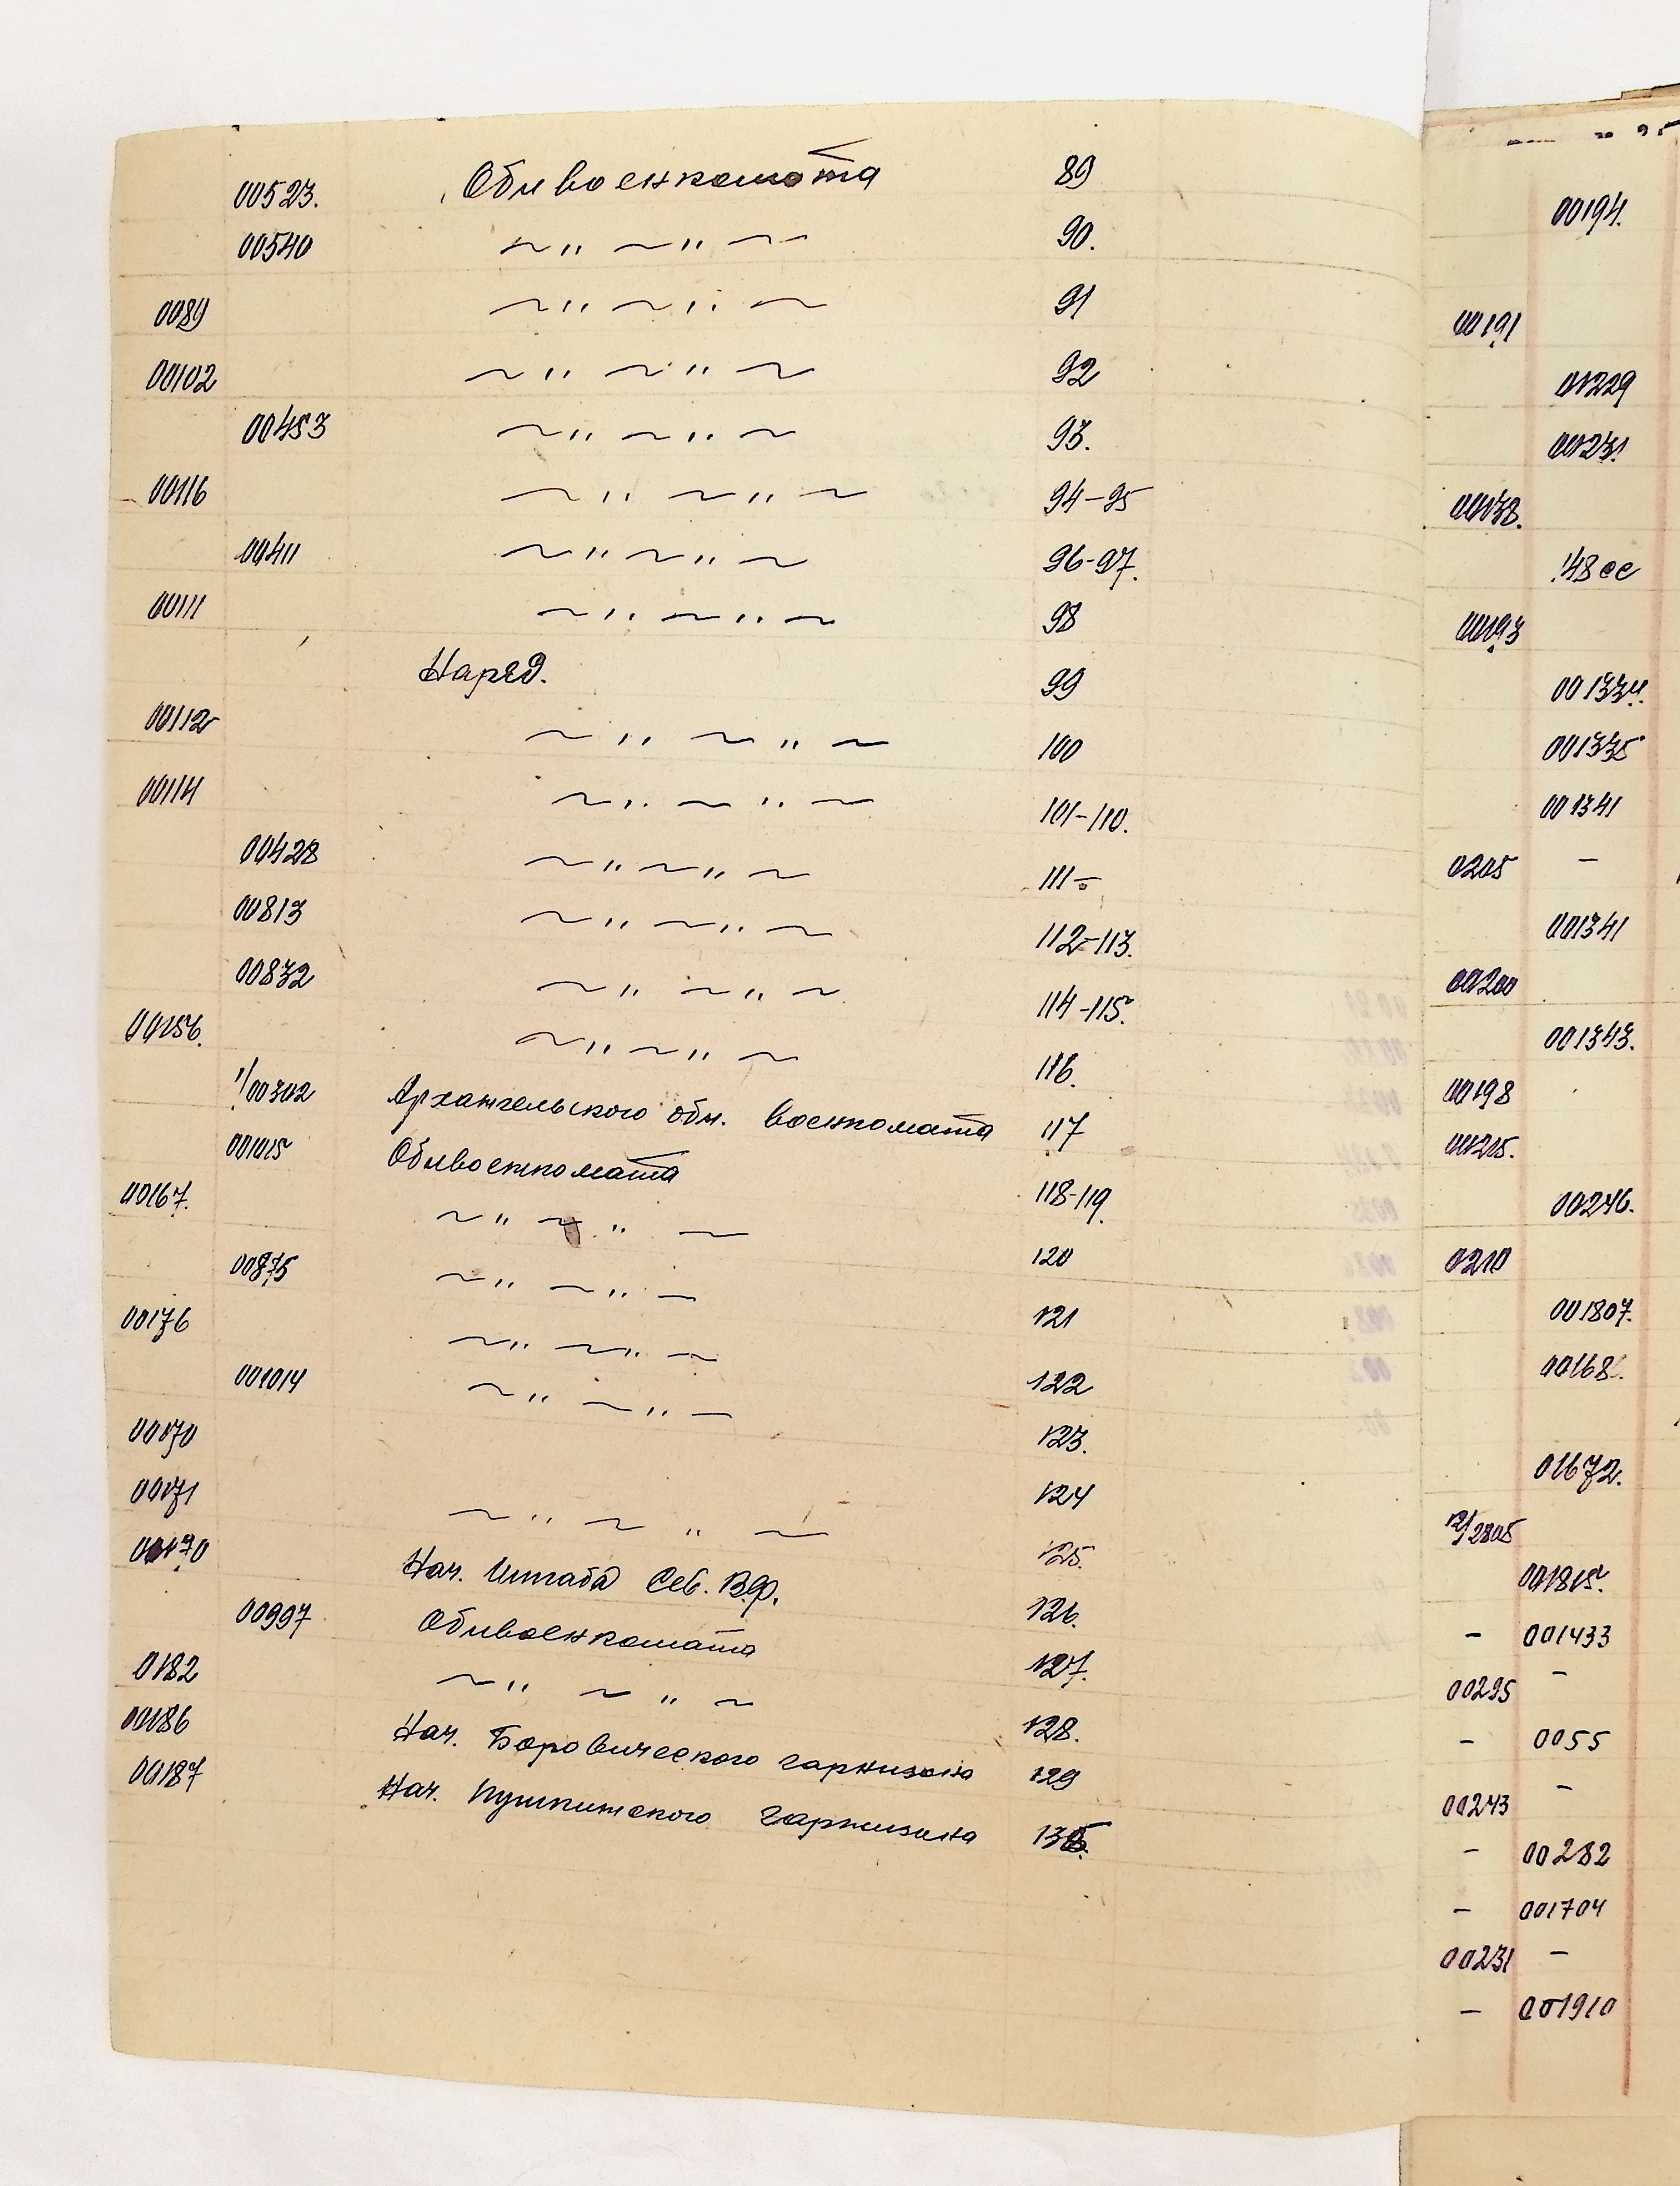 00523. Облвоенкомата 89
00540 ~ " ~ " ~ 90.
0089 ~ " ~ " ~ 91
00102 ~ " ~ " ~ 92
00453 ~ " ~ " ~ 93.
00116 ~ " ~ " ~ 94-95
00411 ~ " ~ " ~ 96-97.
00111 ~ " ~ " ~ 98
Наряд. 99
00112 ~ " ~ " ~ 100
00114 ~ " ~ " ~ 101-110.
00428 ~ " ~ " ~ 111-
00813 ~ " ~ " ~ 112-113.
00832 ~ " ~ " ~ 114-115.
00156. ~ " ~ " ~ 116.
1/00302 Архангельского обл. военкомата 117
001015 Облвоенкомата 118-119.
00167. ~ " ~ " ~ 120
00875 ~ " ~ " ~ 121
00176 ~ " ~ " ~ 122
001014 ~ " ~ " ~ 123.
00170 124
00171 ~ " ~ " ~ 125.
00170 Нач. Штаба Сев. В.Ф. 126.
00997 Облвоенкомата 127.
0182 ~ " ~ " ~ 128.
00186 Нач. Боровического гарнизона 129
00187 Нач. Пушкинского гарнизона
00194.
00191
01229
00231
00138.
148сс
00193
001334.
001335
001341
0205 –
001341
00200
001343.
00198
00215.
00246.
0210
001807.
00168.
01672.
001815.
– 001433
00295 –
– 0055
00243 –
– 00282
– 001704
00231 –
– 001910